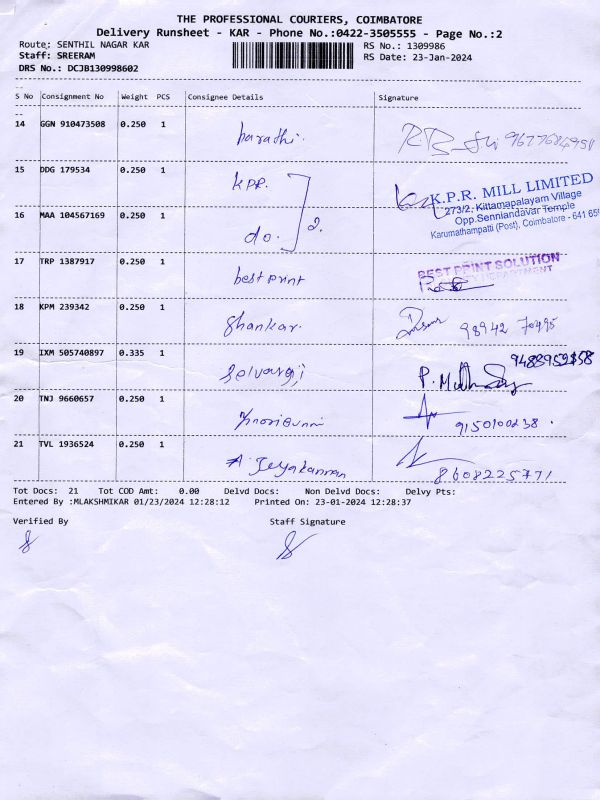 THE PROFESSIONAL COURIERS, COIMBATORE
Delivery Runsheet - KAR - Phone No.:0422-3505555 - Page No.:2
Route: SENTHIL NAGAR KAR
RS No.: 1309986
Staff: SREERAM
RS Date: 23-Jan-2024
DRS No.: DCJB130998602
S No Consignment No Weight PCS Consignee Details Signature
14 GGN 910473508 0.250 1 barathi.
15 DDG 179534 0.250 1 KPR. 2.
K.P.R. MILL LIMITED
273/2, Kittampalayam Village
Opp.Senniandavar Temple
Karumathampatti (Post), Coimbatore - 641 659
16 MAA 104567169 0.250 1 do.
17 TRP 1387917 0.250 1 best print
BEST PRINT SOLUTION
18 KPM 239342 0.250 1 Shankar. 98942 70495
19 IXM 505740897 0.335 1 Selvaraji
20 TNJ 9660657 0.250 1 9150100238.
21 TVL 1936524 0.250 1 A. Jeyakannan 8608225771
Tot Docs: 21 Tot COD Amt: 0.00 Delvd Docs: Non Delvd Docs: Delvy Pts:
Entered By :MLAKSHMIKAR 01/23/2024 12:28:12 Printed On: 23-01-2024 12:28:37
Verified By Staff Signature